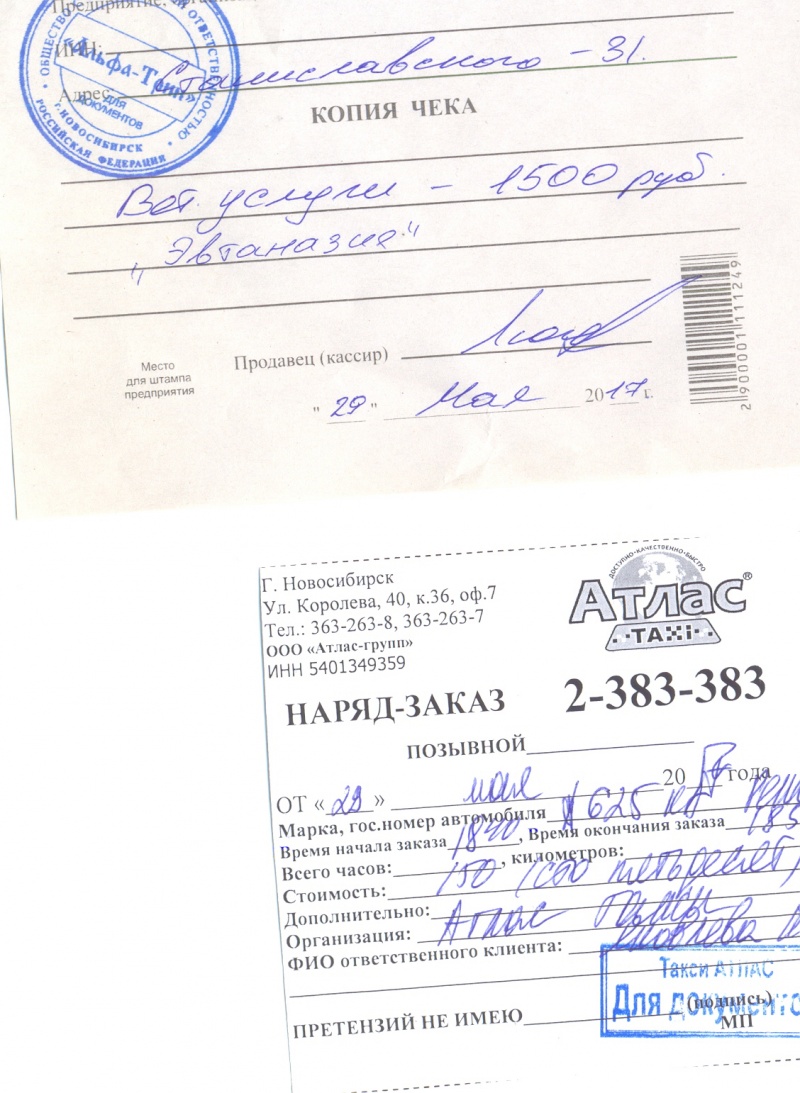 Предприятие, организация
ИНН:
Адрес Станиславского - 31.
ОБЩЕСТВО ОТВЕТСТВЕННОСТЬЮ
«Альфа-Трин»
ДЛЯ
ДОКУМЕНТОВ
г. НОВОСИБИРСК
РОССИЙСКАЯ ФЕДЕРАЦИЯ
КОПИЯ ЧЕКА
Вет. услуги - 1500 руб.
"Эвтаназия"
Место
для штампа
предприятия
Продавец (кассир)
" 29 " Мая 2017 г.
2 900001 111249
Г. Новосибирск
Ул. Королева, 40, к.36, оф.7
Тел.: 363-263-8, 363-263-7
ООО «Атлас-групп»
ИНН 5401349359
ДОСТУПНО-КАЧЕСТВЕННО-БЫСТРО
АТЛАС®
ТАХI
НАРЯД-ЗАКАЗ 2-383-383
ПОЗЫВНОЙ
ОТ « 29 » мая 20 17 года
Марка, гос.номер автомобиля 625
Время начала заказа 1840, Время окончания заказа
Всего часов: , километров:
Стоимость: 150 (сто пятьдесят)
Дополнительно:
Организация: Атлас
ФИО ответственного клиента: Яковлева
Такси АТЛАС
Для документо
(подпись)
ПРЕТЕНЗИЙ НЕ ИМЕЮ МП